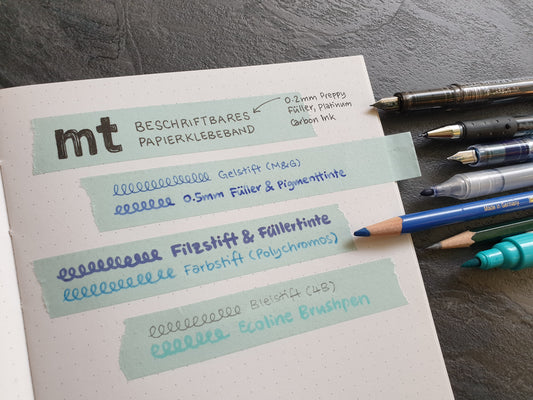 mt BESCHRIFTBARES
PAPIERKLEBEBAND
0.2mm Preppy
Füller, Platinum
Carbon Ink
Gelstift (M&G)
0.5mm Füller & Pigmenttinte
Filzstift & Füllertinte
Farbstift (Polychromos)
Bleistift (4B)
Ecoline Brushpen
Made in Germany